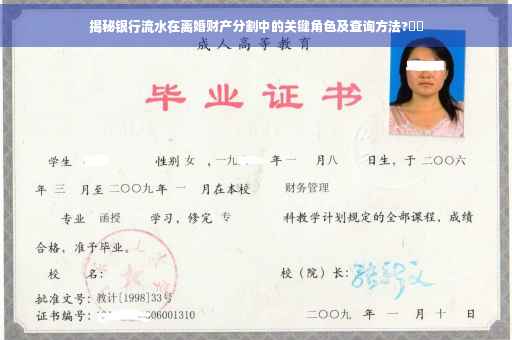 揭秘银行流水在离婚财产分割中的关键角色及查询方法?
成人高等教育
毕业证书
学生 性别 女 , 一九 年 一 月 八 日生, 于 二〇〇六
年 三 月至 二〇〇九 年 一 月在本校 财务管理
专业 函授 学习, 修完 专 科教学计划规定的全部课程, 成绩
合格, 准予毕业。
校 名: 校 (院) 长:
批准文号: 教计[1998]33号
证书编号: 06001310 二〇〇九 年 一 月 十 日